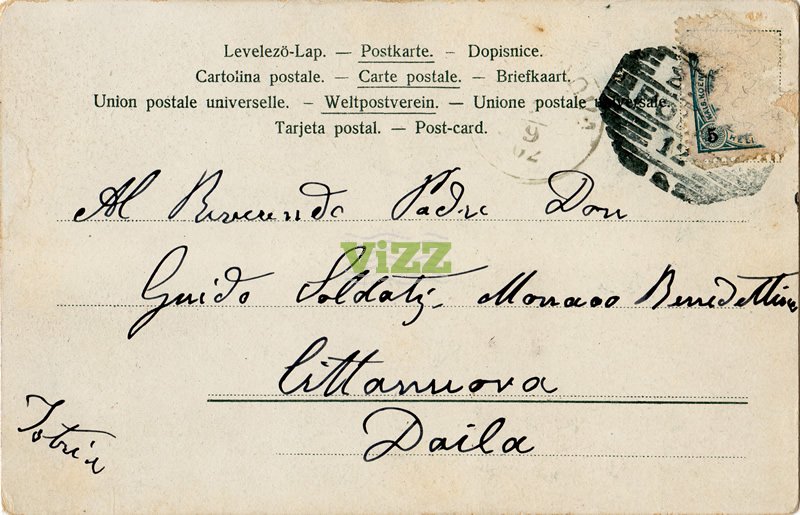 Levelezö-Lap. — Postkarte. – Dopisnice.
Cartolina postale. — Carte postale. – Briefkaart.
Union postale universelle. – Weltpostverein. – Unione postale universale.
Tarjeta postal. – Post-card.
12
5
Al Reverendo Padre Don
ViZZ
Guido Soldati Monaco Benedettino
Cittanuova
Daila
Istria